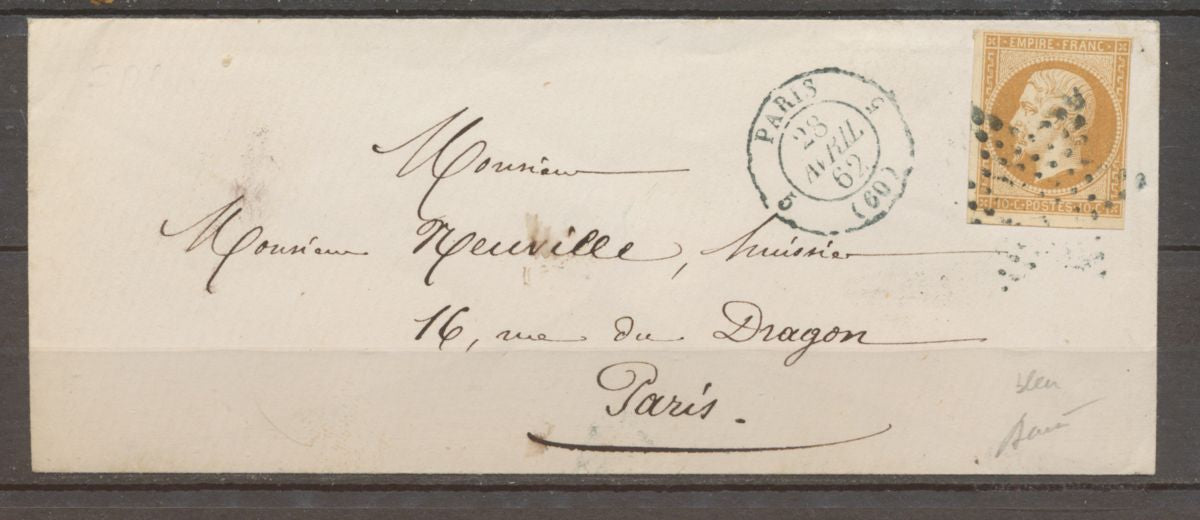 EMPIRE FRANC
10·C·POSTES·10·C
PARIS 5
28
AVRIL
62
5 (60)
Monsieur
Monsieur Neuville, huissier
16, rue du Dragon
Paris.